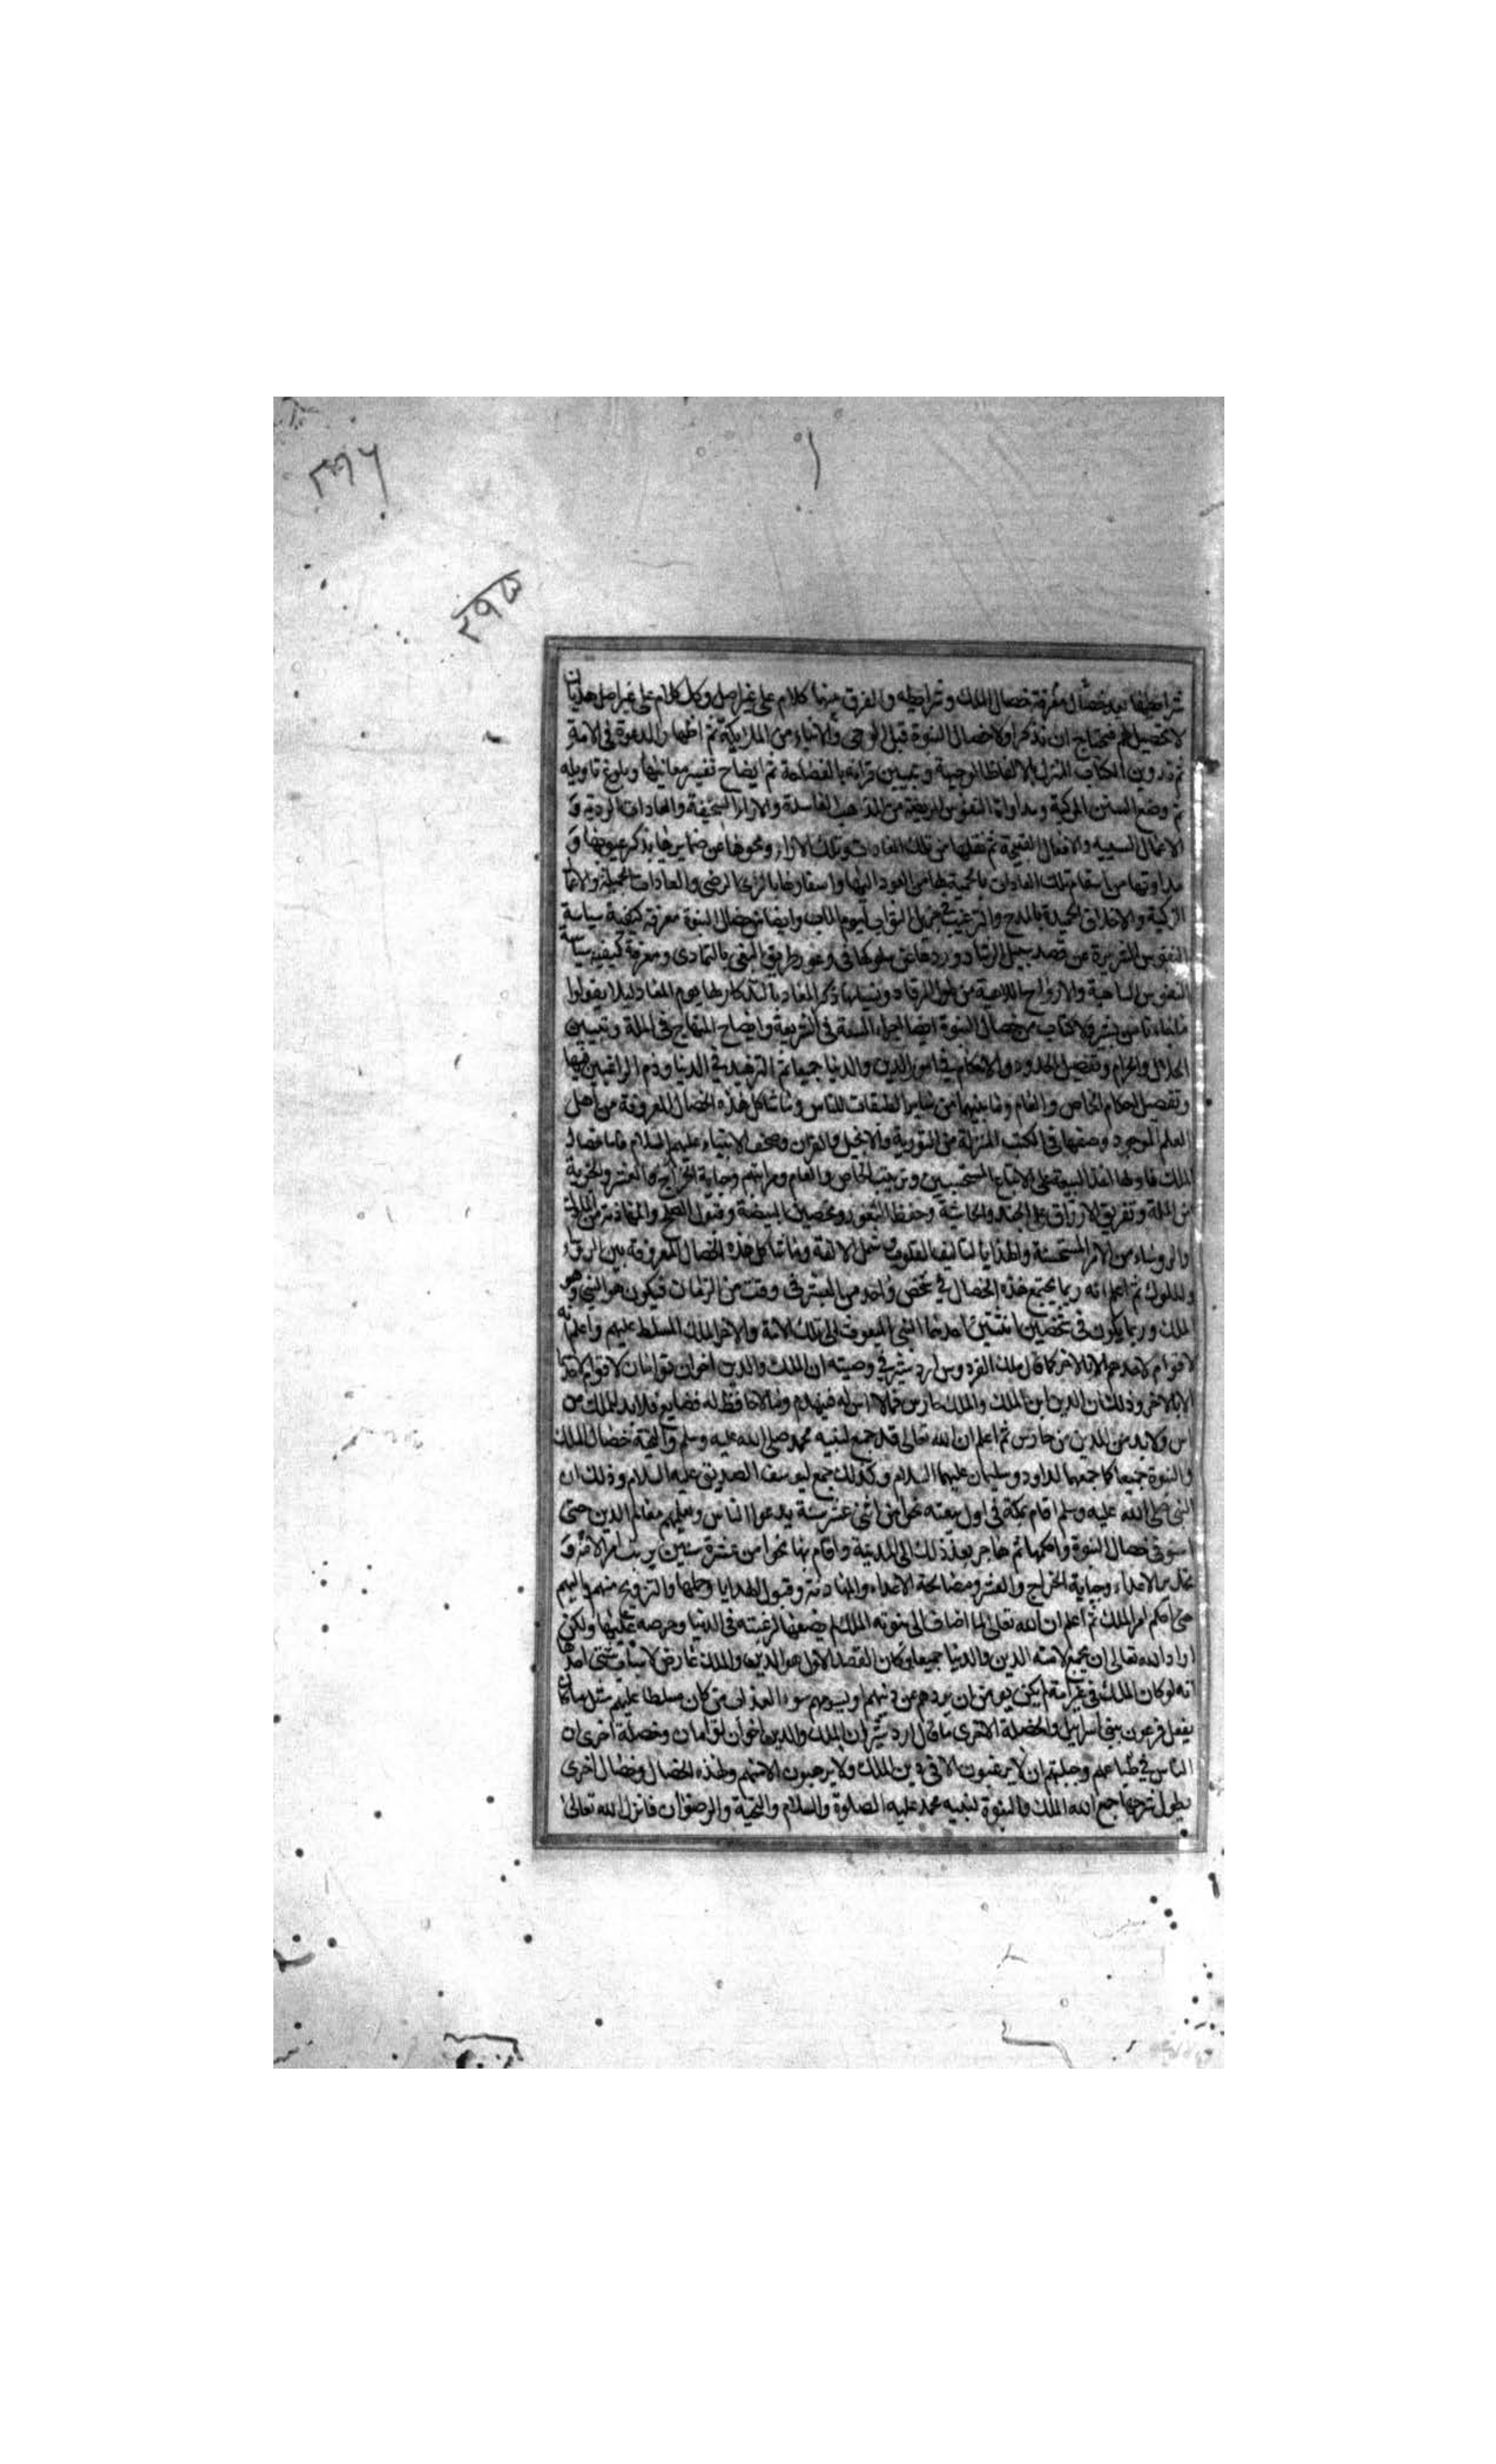 شرايطها بعد خصال معرفة خصال الملك وشرايطه والفرق بينهما كلام على غير اصل وكل كلام على غير اصل هذيان
لا تحصيل لهم فنحتاج ان نذكر اولا خصال النبوة قبل الوحى والانباء من الملايكة ثم اظهار الدعوة فى الامة
ثم تدوين الكتاب المنزل بالالفاظ الوجيزة وتبيين قراته بالفصاحة ثم ايضاح تفسير معانيها وبلوغ تاويله
ثم وضع السنن المركبة ومداواة النفوس المريضة من المذاهب الفاسدة والاراء السخيفة والعادات الردية و
الاعمال السيية والافعال القبيحة ثم نقلها من تلك العادات وتلك الاراء ومحوها عن ضمايرها بذكر عيوبها و
مداوتها من اسقام تلك العادات بالحمية لها من العود اليها واسفارها بالراى الرضى والعادات الجميلة والاعمال
الزكية والاخلاق الحميدة بالمدح والترغيب فى جزيل الثواب ليوم الماب وايضا من خصال النبوة معرفة كيفية سياسة
النفوس الشريرة عن قصد سبيل الرشاد وردها عن سلوكها فى وعور طريق البغى بالتمادى ومعرفة كيفية سياسة
النفوس الساهية والارواح اللاهية من طول الرقاد ونسيانها ذكر المعاد بالتذكار لها يوم المعاد ليلا يقولوا
ما جاءنا من بشير ولا كتاب ومن خصال النبوة ايضا اجراء السنة فى الشريعة وايضاح المنهاج فى الملة وتبيين
الحلال والحرام وتفصيل الحدود والاحكام فى امور الدين والدنيا جميعا ثم التزهيد فى الدنيا وذم الراغبين فيها
وتفصيل احكام الخاص والعام وما بينهما من ساير الطبقات للناس وما شاكل هذه الخصال المعروفة من اهل
العلم الموجود وصفها فى الكتب المنزلة من التورية والانجيل والقران وصحف الانبياء عليهم السلام فاما خصال
الملك فاولها اخذ البيعة على الاتباع المستجيبين وترتيب الخاص والعام ومراتبهم وجباية الخراج والعشر والجزية
من الملة وتفريق الارزاق على الجند والحاشية وحفظ الثغور وتحصين البيضة وقبول الصلح والمهادنة من الملوك
والروساء من الامور المستحسنة والهدايا لتاليف القلوب وشمل الالفة وما شاكل هذه الخصال المعروفة بين الروساء
والملوك ثم اعلم انه ربما يجتمع هذه الخصال فى شخص واحد من البشر فى وقت من الزمان فيكون هو النبى وهو
الملك وربما يكون فى شخصين اثنين احدهما النبى المبعوث الى تلك الامة والاخر الملك المسلط عليهم واعلم انه
لا قوام لاحدهما الا بالاخر كما قال ملك الفردوس اردشير فى وصيته ان الملك والدين اخوان توامان لا قوام لاحدهما
الا بالاخر وذلك ان الدين اس الملك والملك حارس فما لا اس له فينهدم وما لا حافظ له فضايع فلا بد للملك من
اس ولا بد من الدين من حارس ثم اعلم ان الله تعالى قد جمع لنبيه محمد صلى الله عليه وسلم والتحية خصال الملك
والنبوة جميعا كما جمعهما لداود وسليمان عليهما السلام وكذلك جمع ليوسف الصديق عليه السلام وذلك ان
النبى صلى الله عليه وسلم اقام بمكة فى اول مبعثه نحوا من اثنى عشر سنة يدعوا الناس ويعلمهم معالم الدين حتى
استوفى خصال النبوة واحكمها ثم هاجر بعد ذلك الى المدينة واقام بها نحوا من عشرة سنين يرتب امر الامة و
الاعداء وجباية الخراج والعشر ومصالحة الاعداء والمهادنة وقبول الهدايا وحملها والتزويج منهم واليهم
حتى احكم امر الملك ثم اعلم ان الله تعالى لما اضاف الى نبوته الملك لم يضفها لرغبته فى الدنيا وحرصه عليها ولكن
اراد الله تعالى ان يجمع لامته الدين والدنيا جميعا وكان القصد الاول هو الدين والملك عارض لاسباب شتى احدها
انه لو كان الملك فى غير امته لم يكن يومن ان يردهم عن دينهم او يسومهم سوء العذاب من كان مسلطا عليهم مثل ما كان
يفعل فرعون ببنى اسرايل والخصلة الاخرى ما قال اردشير ان الملك والدين اخوان توامان وخصلة اخرى ان
الناس فى طباعهم وجبلتهم ان لا يرغبون الا فى دين الملك ولا يرهبون الا منهم ولهذه الخصال وخصال اخرى
يطول شرحها جمع الله الملك والنبوة لنبيه محمد عليه الصلوة والسلام والتحية والرضوان فانزل الله تعالى